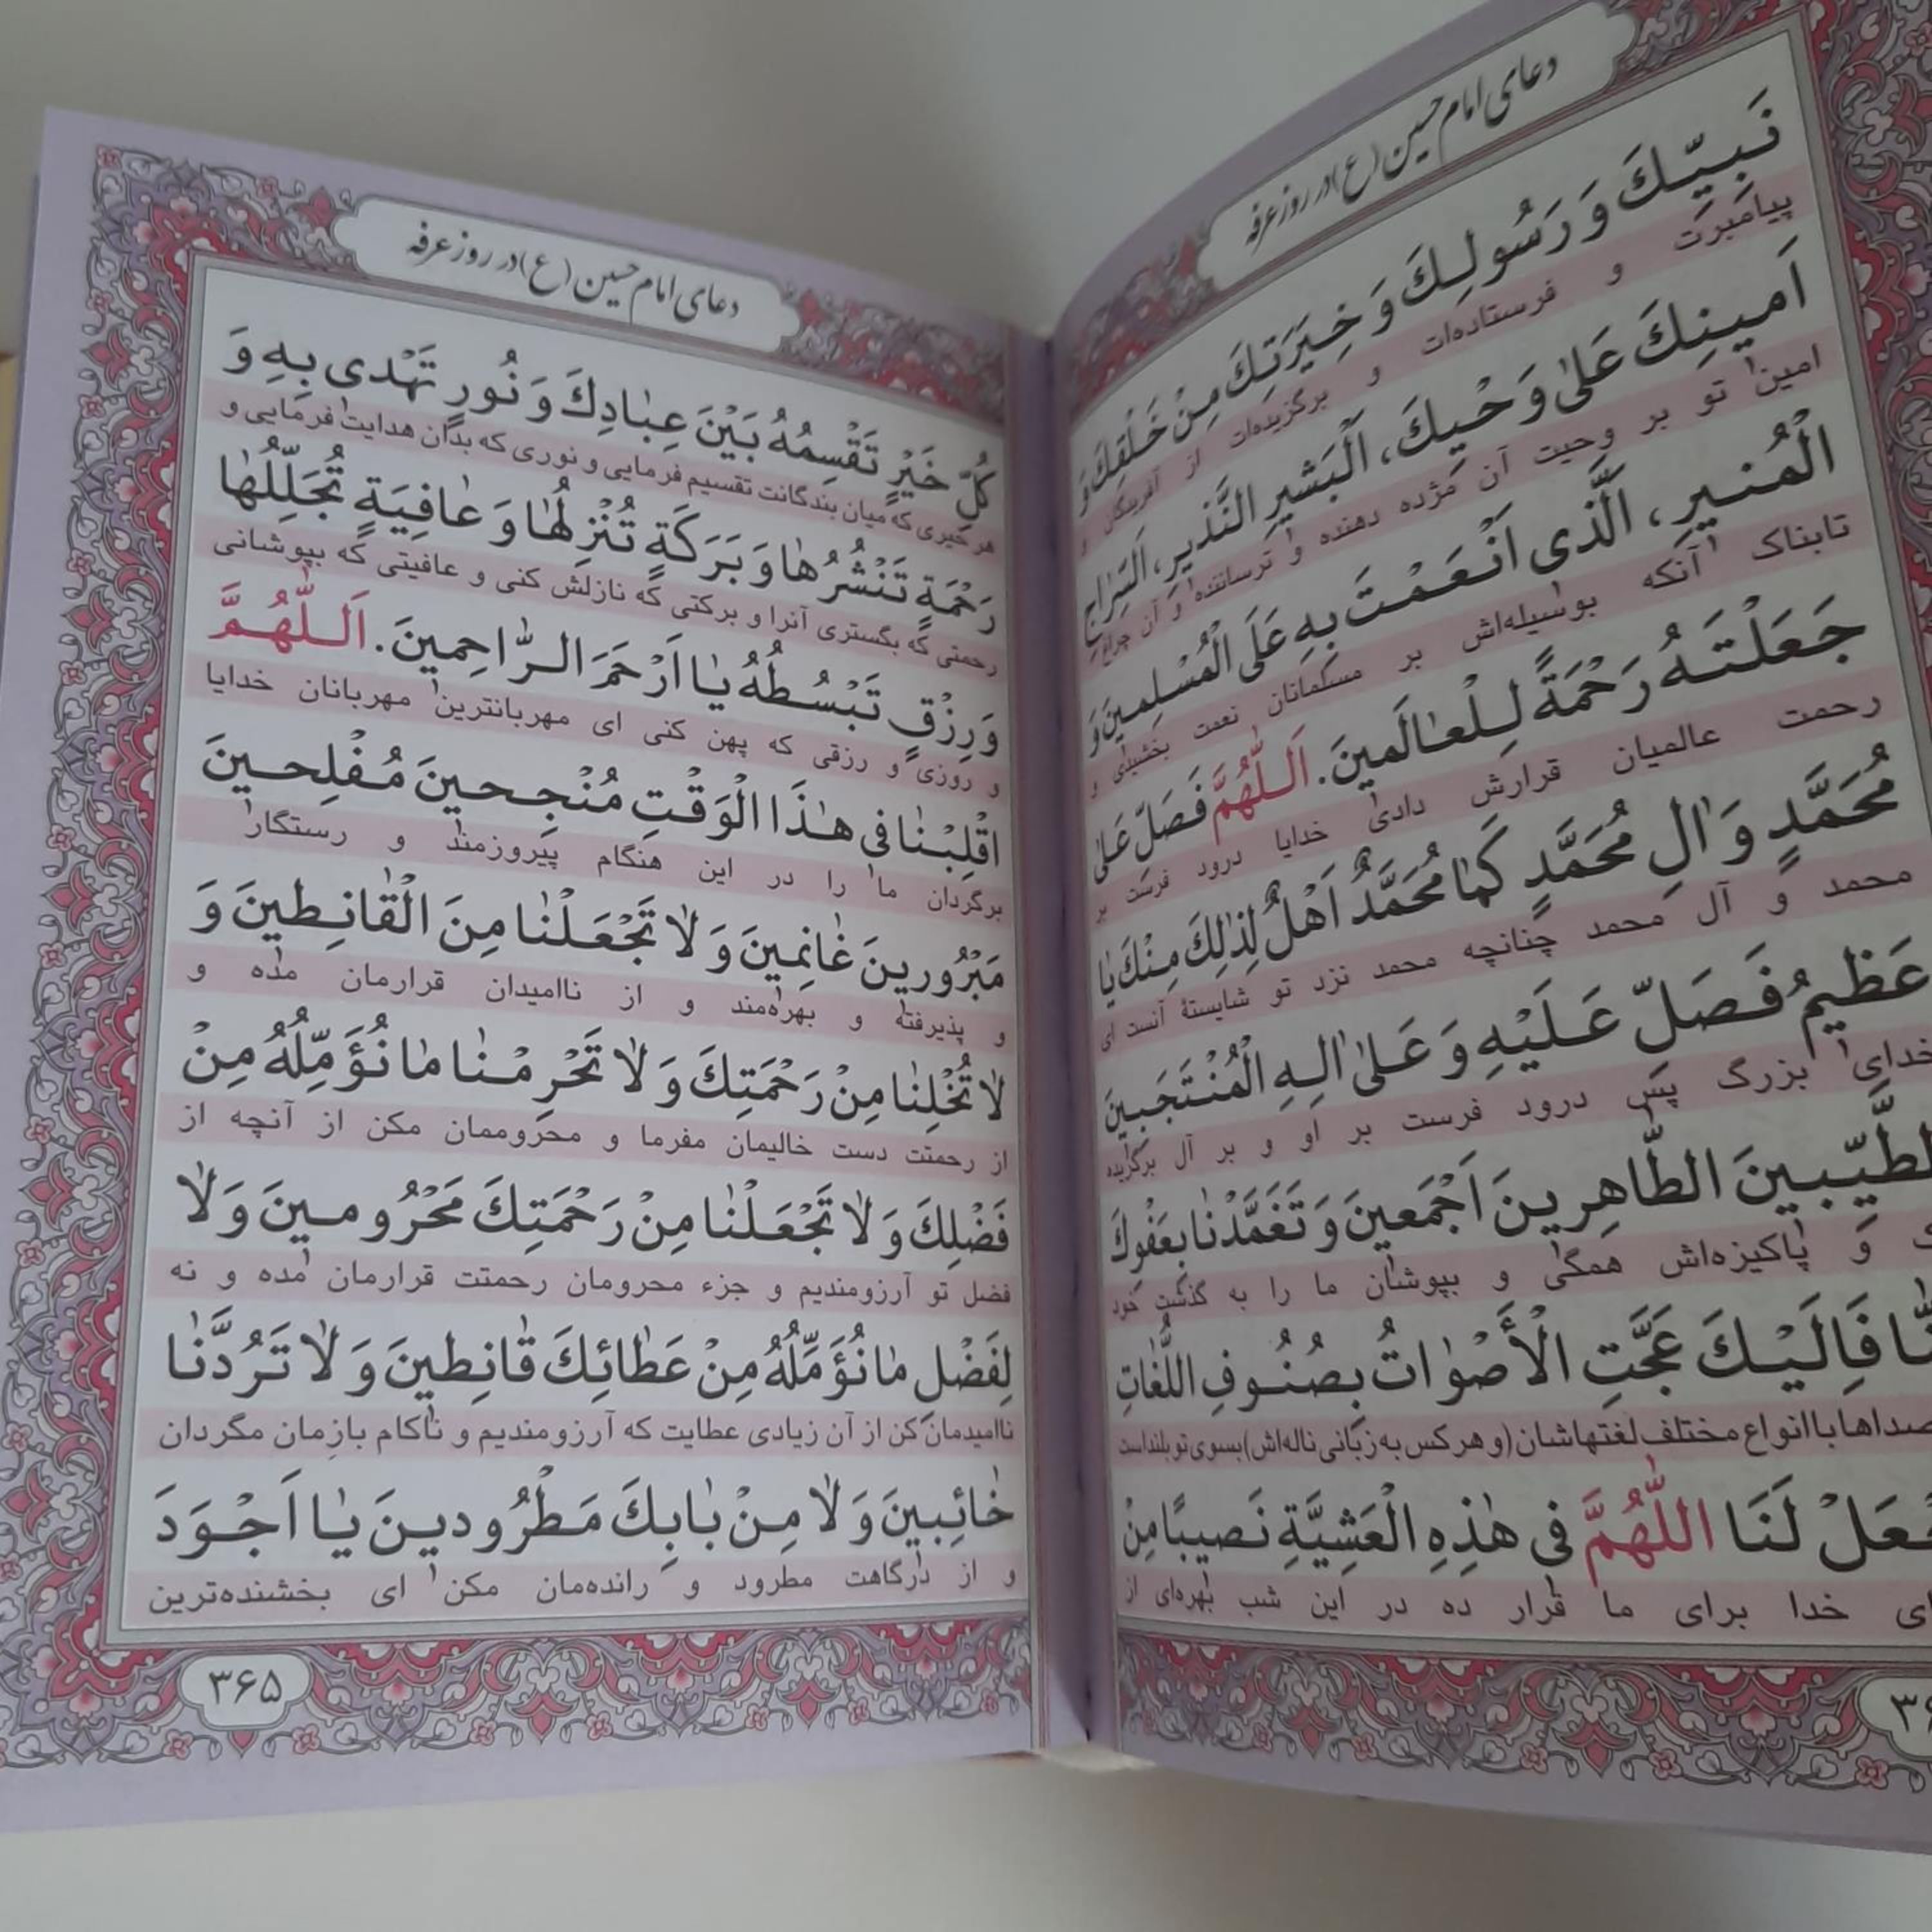 دعای امام حسین (ع) در روز عرفه
نَبِيِّكَ وَ رَسُولِكَ وَ خِيَرَتِكَ مِنْ خَلْقِكَ وَ
پیامبرت و فرستاده‌ات و برگزیده‌ات از آفریدگان و
اَمينِكَ عَلىٰ وَحْيِكَ، اَلْبَشيرِ النَّذيرِ، اَلسِّراجِ
امین تو بر وحیت آن مژده دهنده و ترساننده و آن چراغ
الْمُنيرِ، الَّذى اَنْعَمْتَ بِهِ عَلَى الْمُسْلِمينَ وَ
تابناک آنکه بوسیله‌اش بر مسلمانان نعمت بخشیدی و
جَعَلْتَهُ رَحْمَةً لِلْعٰالَمينَ. اَللّٰهُمَّ فَصَلِّ عَلىٰ
رحمت عالمیان قرارش دادی خدایا درود فرست بر
مُحَمَّدٍ وَ اٰلِ مُحَمَّدٍ كَمٰا مُحَمَّدٌ اَهْلٌ لِذٰلِكَ مِنْكَ يٰا
محمد و آل محمد چنانچه محمد نزد تو شایستهٔ آنست ای
عَظيمُ فَصَلِّ عَلَيْهِ وَ عَلىٰ اٰلِهِ الْمُنْتَجَبينَ
خدای بزرگ پس درود فرست بر او و بر آل برگزیده
الطَّيِّبينَ الطّاهِرينَ اَجْمَعينَ وَ تَغَمَّدْنٰا بِعَفْوِكَ
و پاکیزه‌اش همگی و بپوشان ما را به گذشت خود
فَاِلَيْكَ عَجَّتِ الْأَصْوٰاتُ بِصُنُوفِ اللُّغٰاتِ
صداها با انواع مختلف لغتهاشان (و هر کس به زبانی ناله‌اش) بسوی تو بلند است
لَنَا اللّٰهُمَّ فى هٰذِهِ الْعَشِيَّةِ نَصيبًا مِنْ
خدا برای ما قرار ده در این شب بهره‌ای از
دعای امام حسین (ع) در روز عرفه
كُلِّ خَيْرٍ تَقْسِمُهُ بَيْنَ عِبٰادِكَ وَ نُورٍ تَهْدى بِهِ وَ
هر خیری که میان بندگانت تقسیم فرمایی و نوری که بدان هدایت فرمایی و
رَحْمَةٍ تَنْشُرُهٰا وَ بَرَكَةٍ تُنْزِلُهٰا وَ عٰافِيَةٍ تُجَلِّلُهٰا
رحمتی که بگستری آنرا و برکتی که نازلش کنی و عافیتی که بپوشانی
وَ رِزْقٍ تَبْسُطُهُ يٰا اَرْحَمَ الرّٰاحِمينَ. اَللّٰهُمَّ
و روزی و رزقی که پهن کنی ای مهربانترین مهربانان خدایا
اقْلِبْنٰا فى هٰذَا الْوَقْتِ مُنْجِحينَ مُفْلِحينَ
برگردان ما را در این هنگام پیروزمند و رستگار
مَبْرُورينَ غٰانِمينَ وَ لاٰ تَجْعَلْنٰا مِنَ الْقٰانِطينَ وَ
و پذیرفته و بهره‌مند و از ناامیدان قرارمان مده و
لاٰ تُخْلِنٰا مِنْ رَحْمَتِكَ وَ لاٰ تَحْرِمْنٰا مٰا نُؤَمِّلُهُ مِنْ
از رحمتت دست خالیمان مفرما و محروممان مکن از آنچه از
فَضْلِكَ وَ لاٰ تَجْعَلْنٰا مِنْ رَحْمَتِكَ مَحْرُومينَ وَ لاٰ
فضل تو آرزومندیم و جزء محرومان رحمتت قرارمان مده و نه
لِفَضْلِ مٰا نُؤَمِّلُهُ مِنْ عَطٰائِكَ قٰانِطينَ وَ لاٰ تَرُدَّنٰا
ناامیدمان کن از آن زیادی عطایت که آرزومندیم و ناکام بازمان مگردان
خٰائِبينَ وَ لاٰ مِنْ بٰابِكَ مَطْرُودينَ يٰا اَجْوَدَ
و از درگاهت مطرود و رانده‌مان مکن ای بخشنده‌ترین
۳۶۵